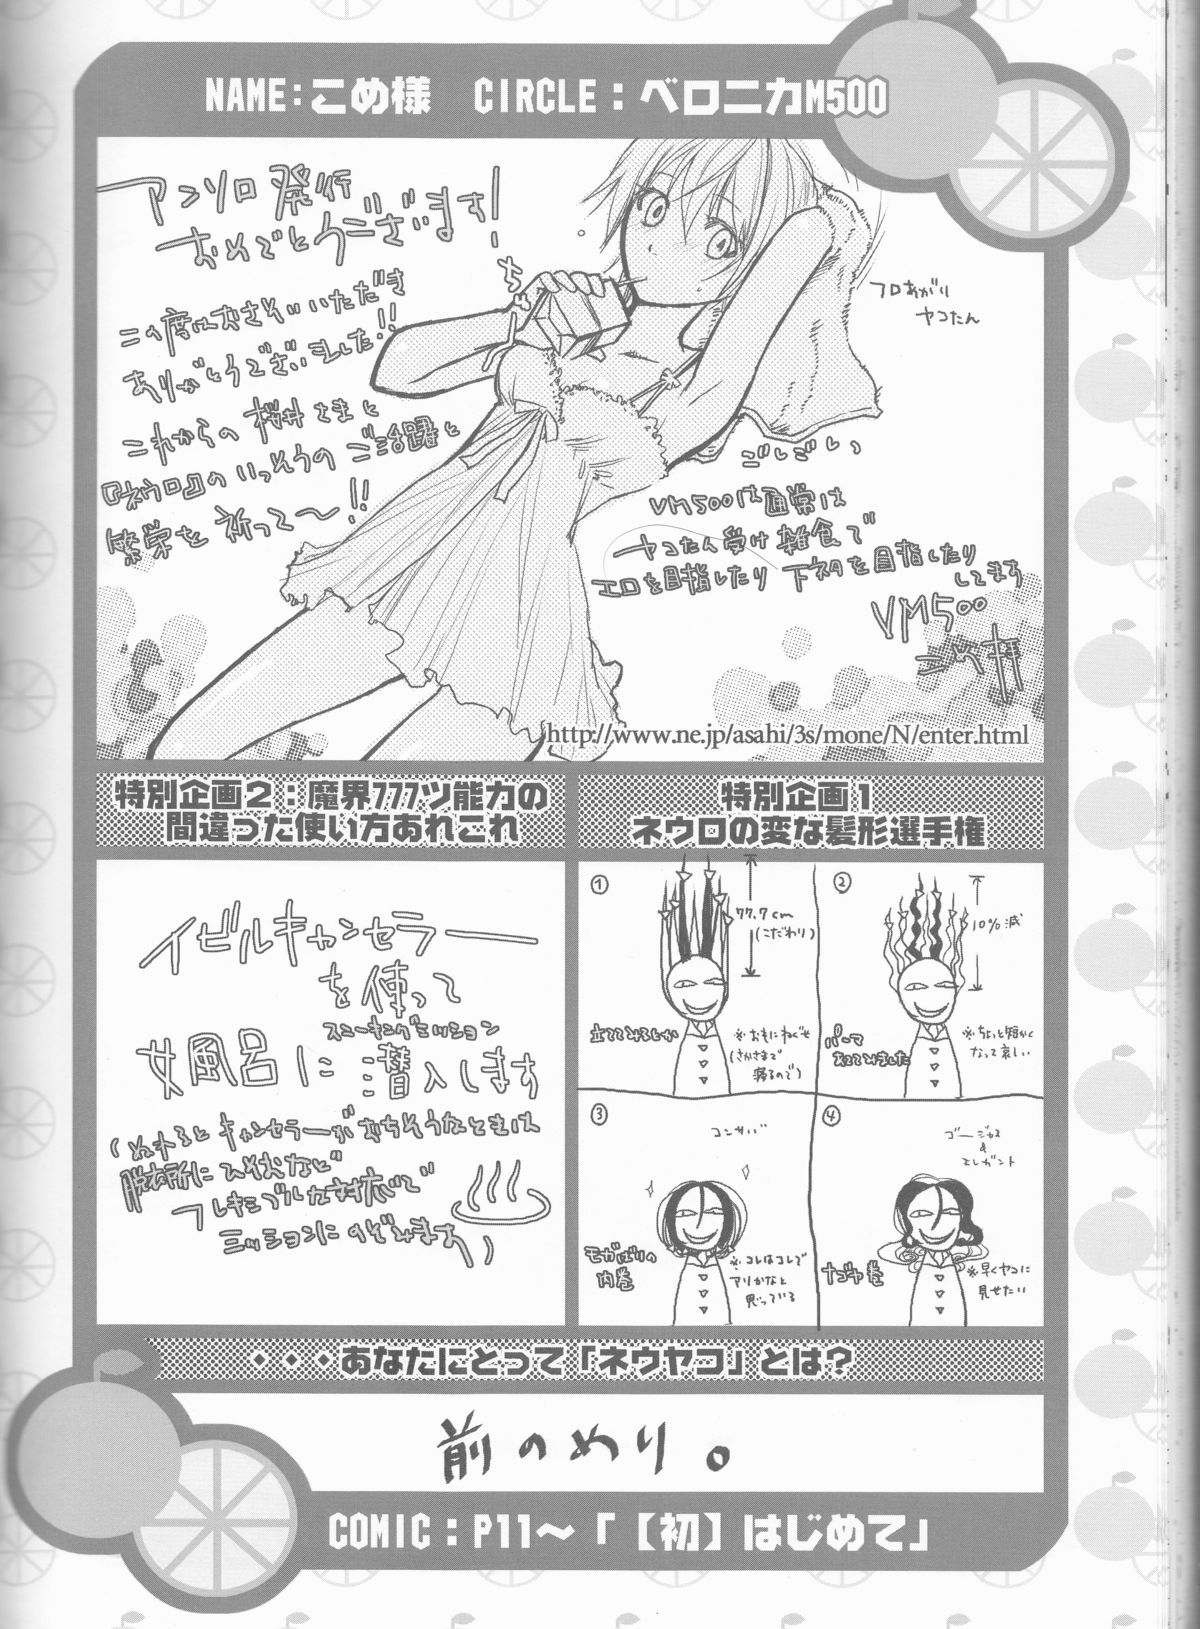 NAME:こめ様　CIRCLE：ベロニカM500
アンソロ発行
おめでとうございます!
この度はおさそいいただき
ありがとうございました!!
これからの 桜井さまと
『ネウロ』の いっそうの ご活躍と
繁栄を 祈って〜!!
ちゅー
フロあがり
ヤコたん
ごしごしっ
VM500は通常は
ヤコたん受け 雑食で
エロを目指したり 下ネタを目指したり
してます
VM500
http://www.ne.jp/asahi/3s/mone/N/enter.html
特別企画1
ネウロの変な髪形選手権
①
77.7cm
(こだわり)
立ててみるとか
※おもにねぐせ
(さかさまで
寝るので)
②
10%減
パーマ
あててみました
※ちょっと短かく
なって哀しい
③
コンサバ
モガばりの
内巻
※コレはコレで
アリかなと
思っている
④
ゴージャス
&
エレガント
ナゴヤ巻
※早くヤコに
見せたい
特別企画2：魔界777ツ能力の
間違った使い方あれこれ
イビルキャンセラー
を使って
女風呂に潜入します
スニーキングミッション
(ぬれると キャンセラーが おちそうなときは
脱衣所に ひそむなど
フレキシブルな対応で
ミッションにのぞみます)
・・・あなたにとって「ネウヤコ」とは？
前のめり。
COMIC：P11〜「【初】はじめて」